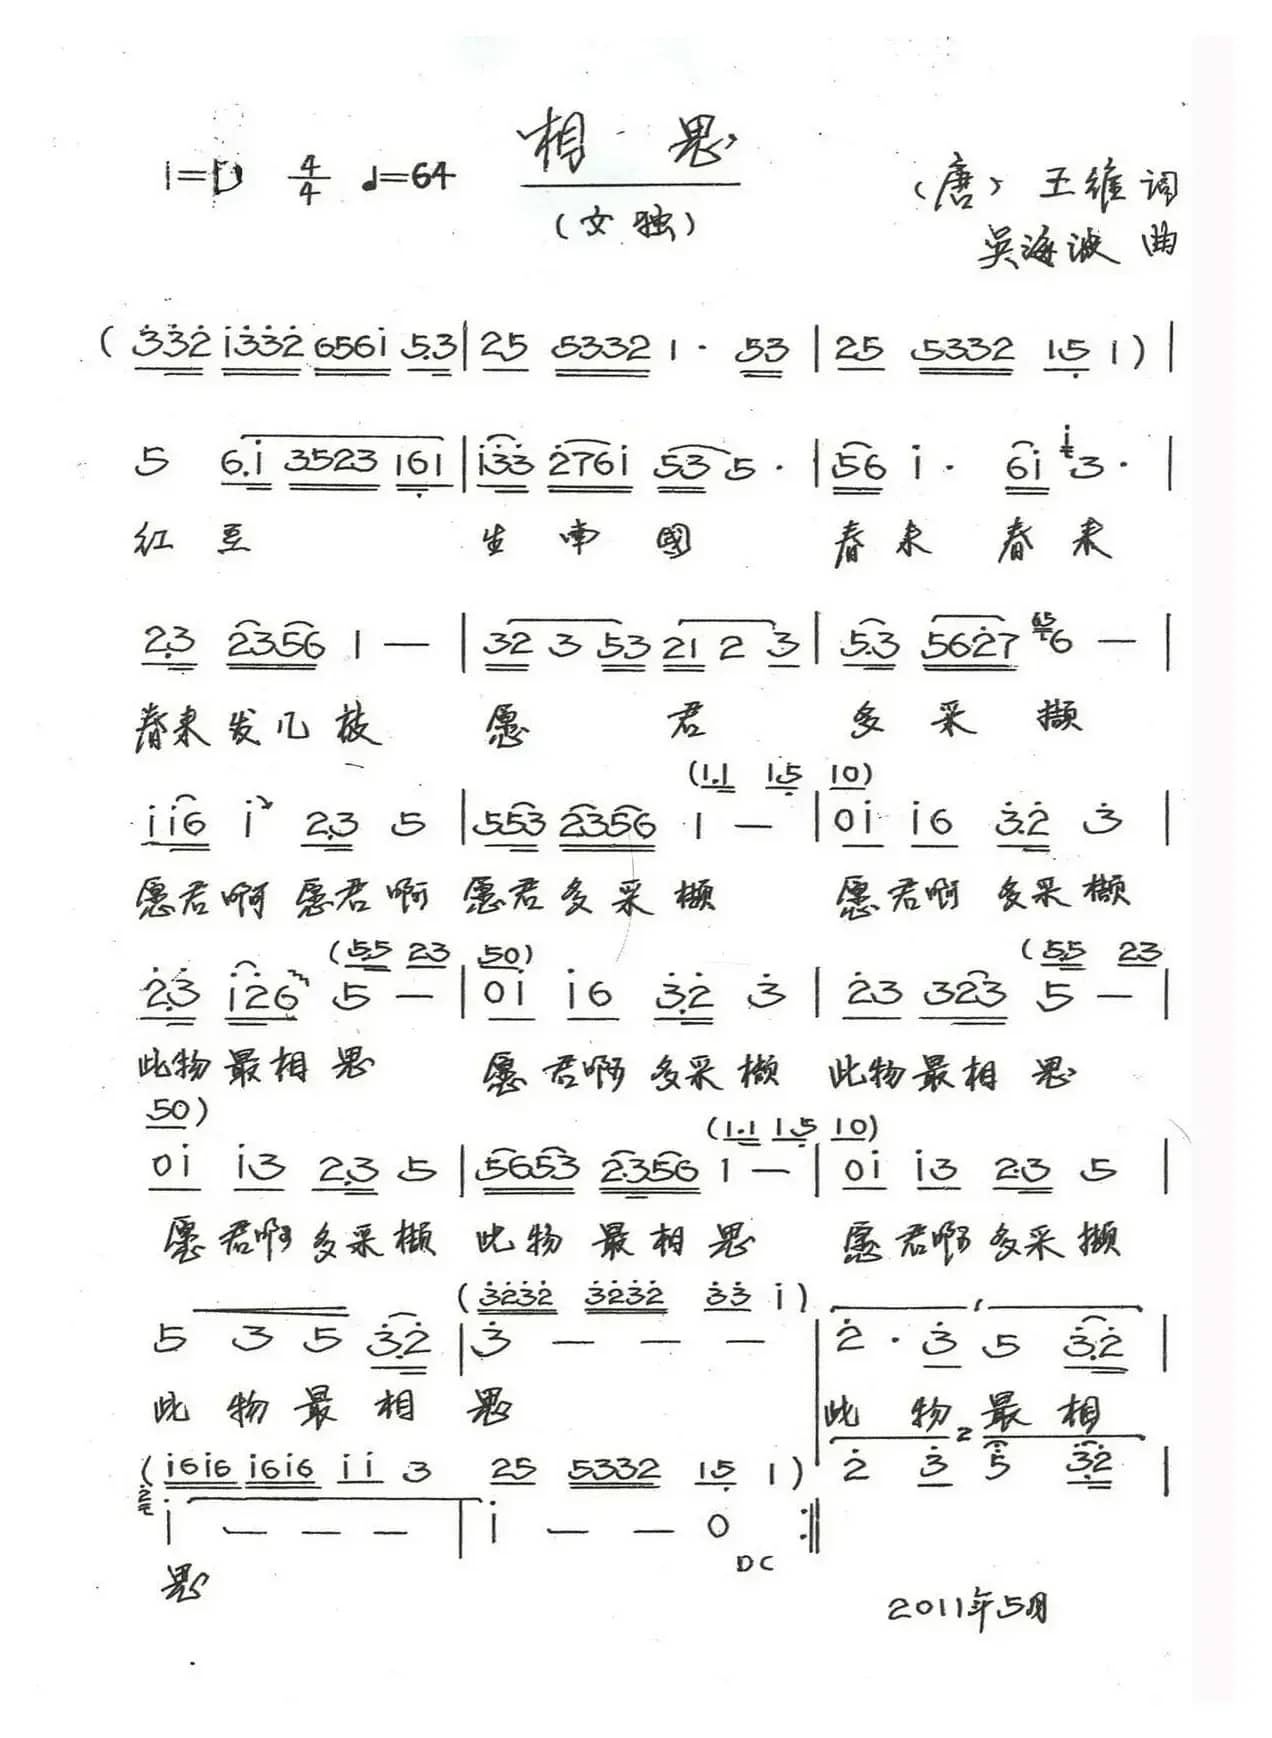 相思
1=D 4/4 ♩=64
(女独)
(唐) 王维 词
吴海波 曲
(3̇3̇2̇ 1̇3̇3̇2̇ 6561̇ 5.3 | 25 5332 1· 53 | 25 5332 15̣ 1) |
5 6.1̇ 3523 16̣1 | 1̇3̇3̇ 2̇761̇ 53 5· | 56 1̇· 61̇ 3· |
红豆 生南國 春来 春来
2.3 2356 1 — | 32 3 53 21 2 3 | 5.3 562̇7 6 — |
春来发几枝 愿 君 多采撷
(1.1 15̣ 10)
1̇1̇6 1̇ 2.3 5 | 553 2356 1 — | 01̇ 1̇6 3̇.2̇ 3̇ |
愿君啊 愿君啊 愿君多采撷 愿君啊 多采撷
(5.5 23 50) (5.5 23
2̇.3̇ 1̇2̇6 5 — | 01̇ 1̇6 3̇.2̇ 3̇ | 23 323 5 — |
此物最相思 愿君啊 多采撷 此物最相思
50) (1.1 15̣ 10)
01̇ 1̇3 2.3 5 | 5653 2.356 1 — | 01̇ 1̇3 2.3 5 |
愿君啊 多采撷 此物最相思 愿君啊多采撷
(3̇2̇3̇2̇ 3̇2̇3̇2̇ 3̇3̇ 1̇)
5 3 5 3̇.2̇ | 3̇ — — — | 2̇· 3̇ 5 3̇.2̇ |
此物最相 思 此物最相
(1̇61̇6 1̇61̇6 1̇1̇ 3 25 5332 15̣ 1) 2̇ 3̇ 5̇ 3̇2̇ |
1̇ — — — | 1̇ — — 0 :‖
DC
思
2011年5月